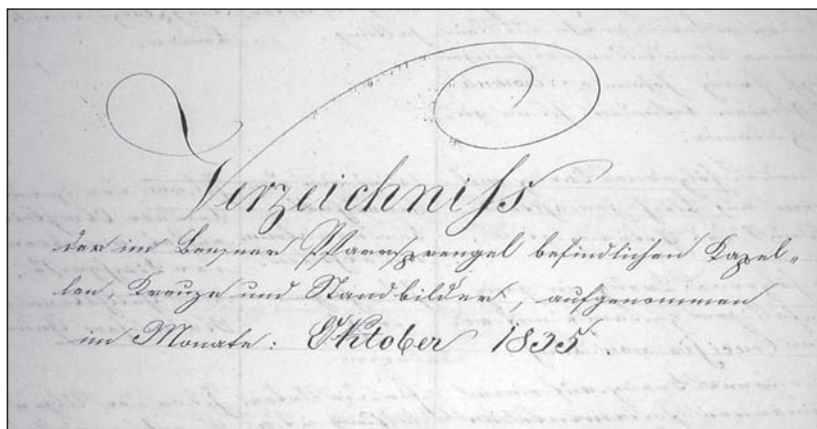 Verzeichniss
der im Bensner Pfarrsprengel befindlichen Kapel-
len, Kreuze und Standbilder, aufgenommen
im Monate: Oktober 1835.